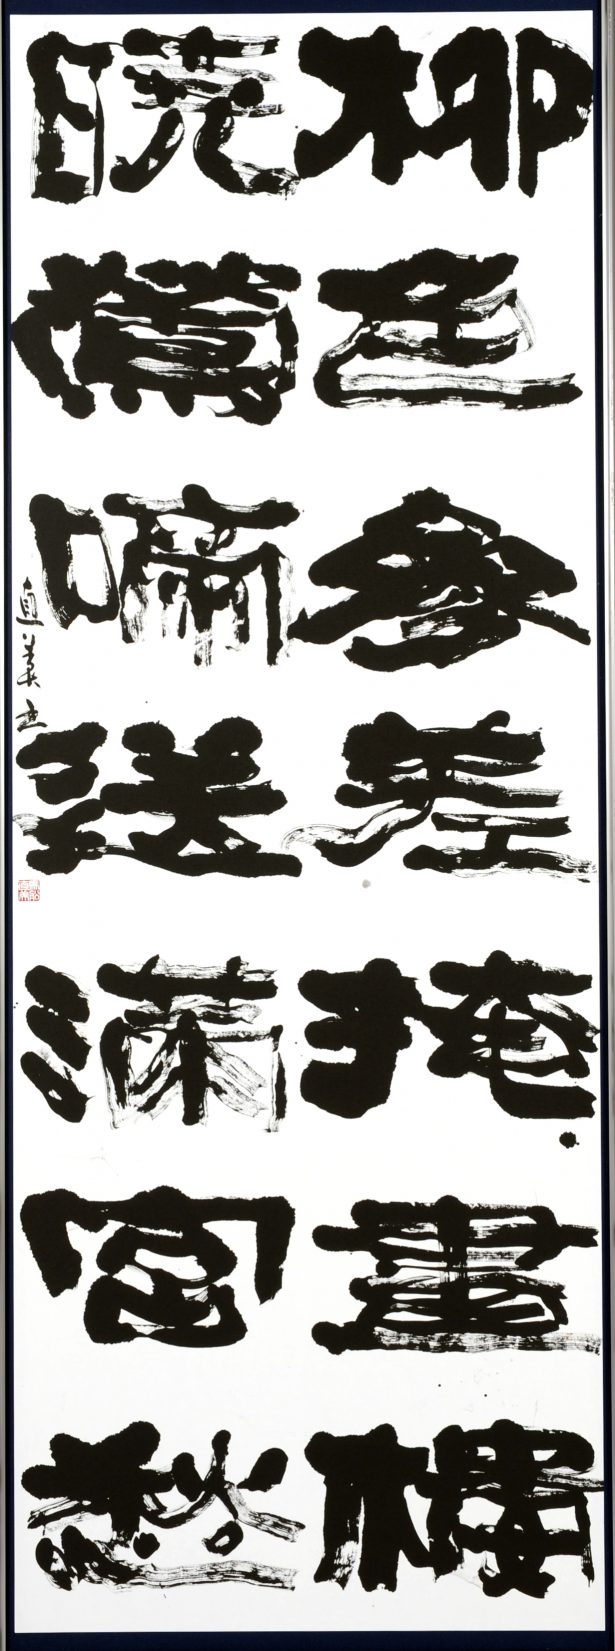 柳色参差掩畫樓
暁鶯啼送満宮愁
直美書